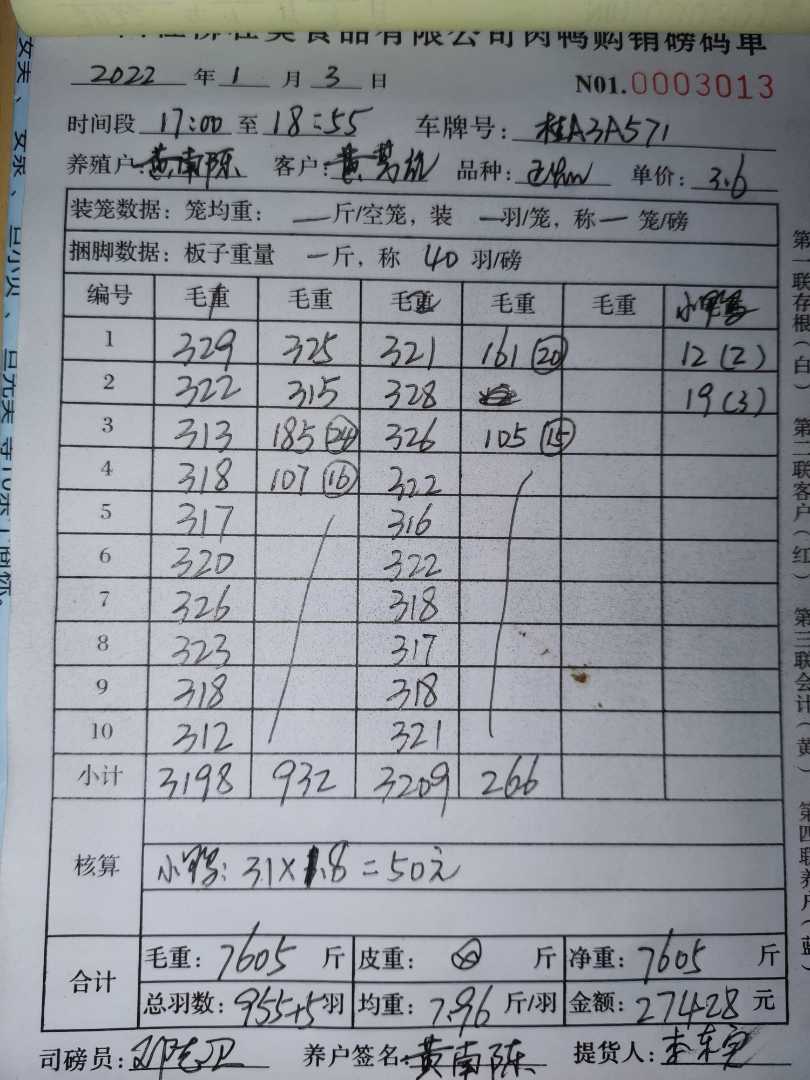 食品有限公司肉鸭购销磅码单
2022 年 1 月 3 日 N01.0003013
时间段 17:00 至 18:55 车牌号: 桂A3A571
养殖户: 黄南陈 客户: 黄 品种: 单价: 3.6
装笼数据: 笼均重: 一斤/空笼, 装 一羽/笼, 称 一 笼/磅
捆脚数据: 板子重量 一斤, 称 40 羽/磅
编号 毛重 毛重 毛重 毛重 毛重 小
1 329 325 321 161 (20) 12 (2)
2 322 315 328 19 (3)
3 313 185 (24) 326 105 (15)
4 318 107 (16) 322
5 317 316
6 320 322
7 326 318
8 323 317
9 318 318
10 312 321
小计 3198 932 3209 266
核算
小 : 31× .8=50元
合计
毛重: 7605 斤 皮重: 斤 净重: 7605 斤
总羽数: 955+5羽 均重: 7.96 斤/羽 金额: 27428 元
司磅员: 邓志卫 养户签名: 黄南陈 提货人: 李东
第一联存根(白) 第二联客户(红) 第三联会计(黄) 第四联养户(蓝)